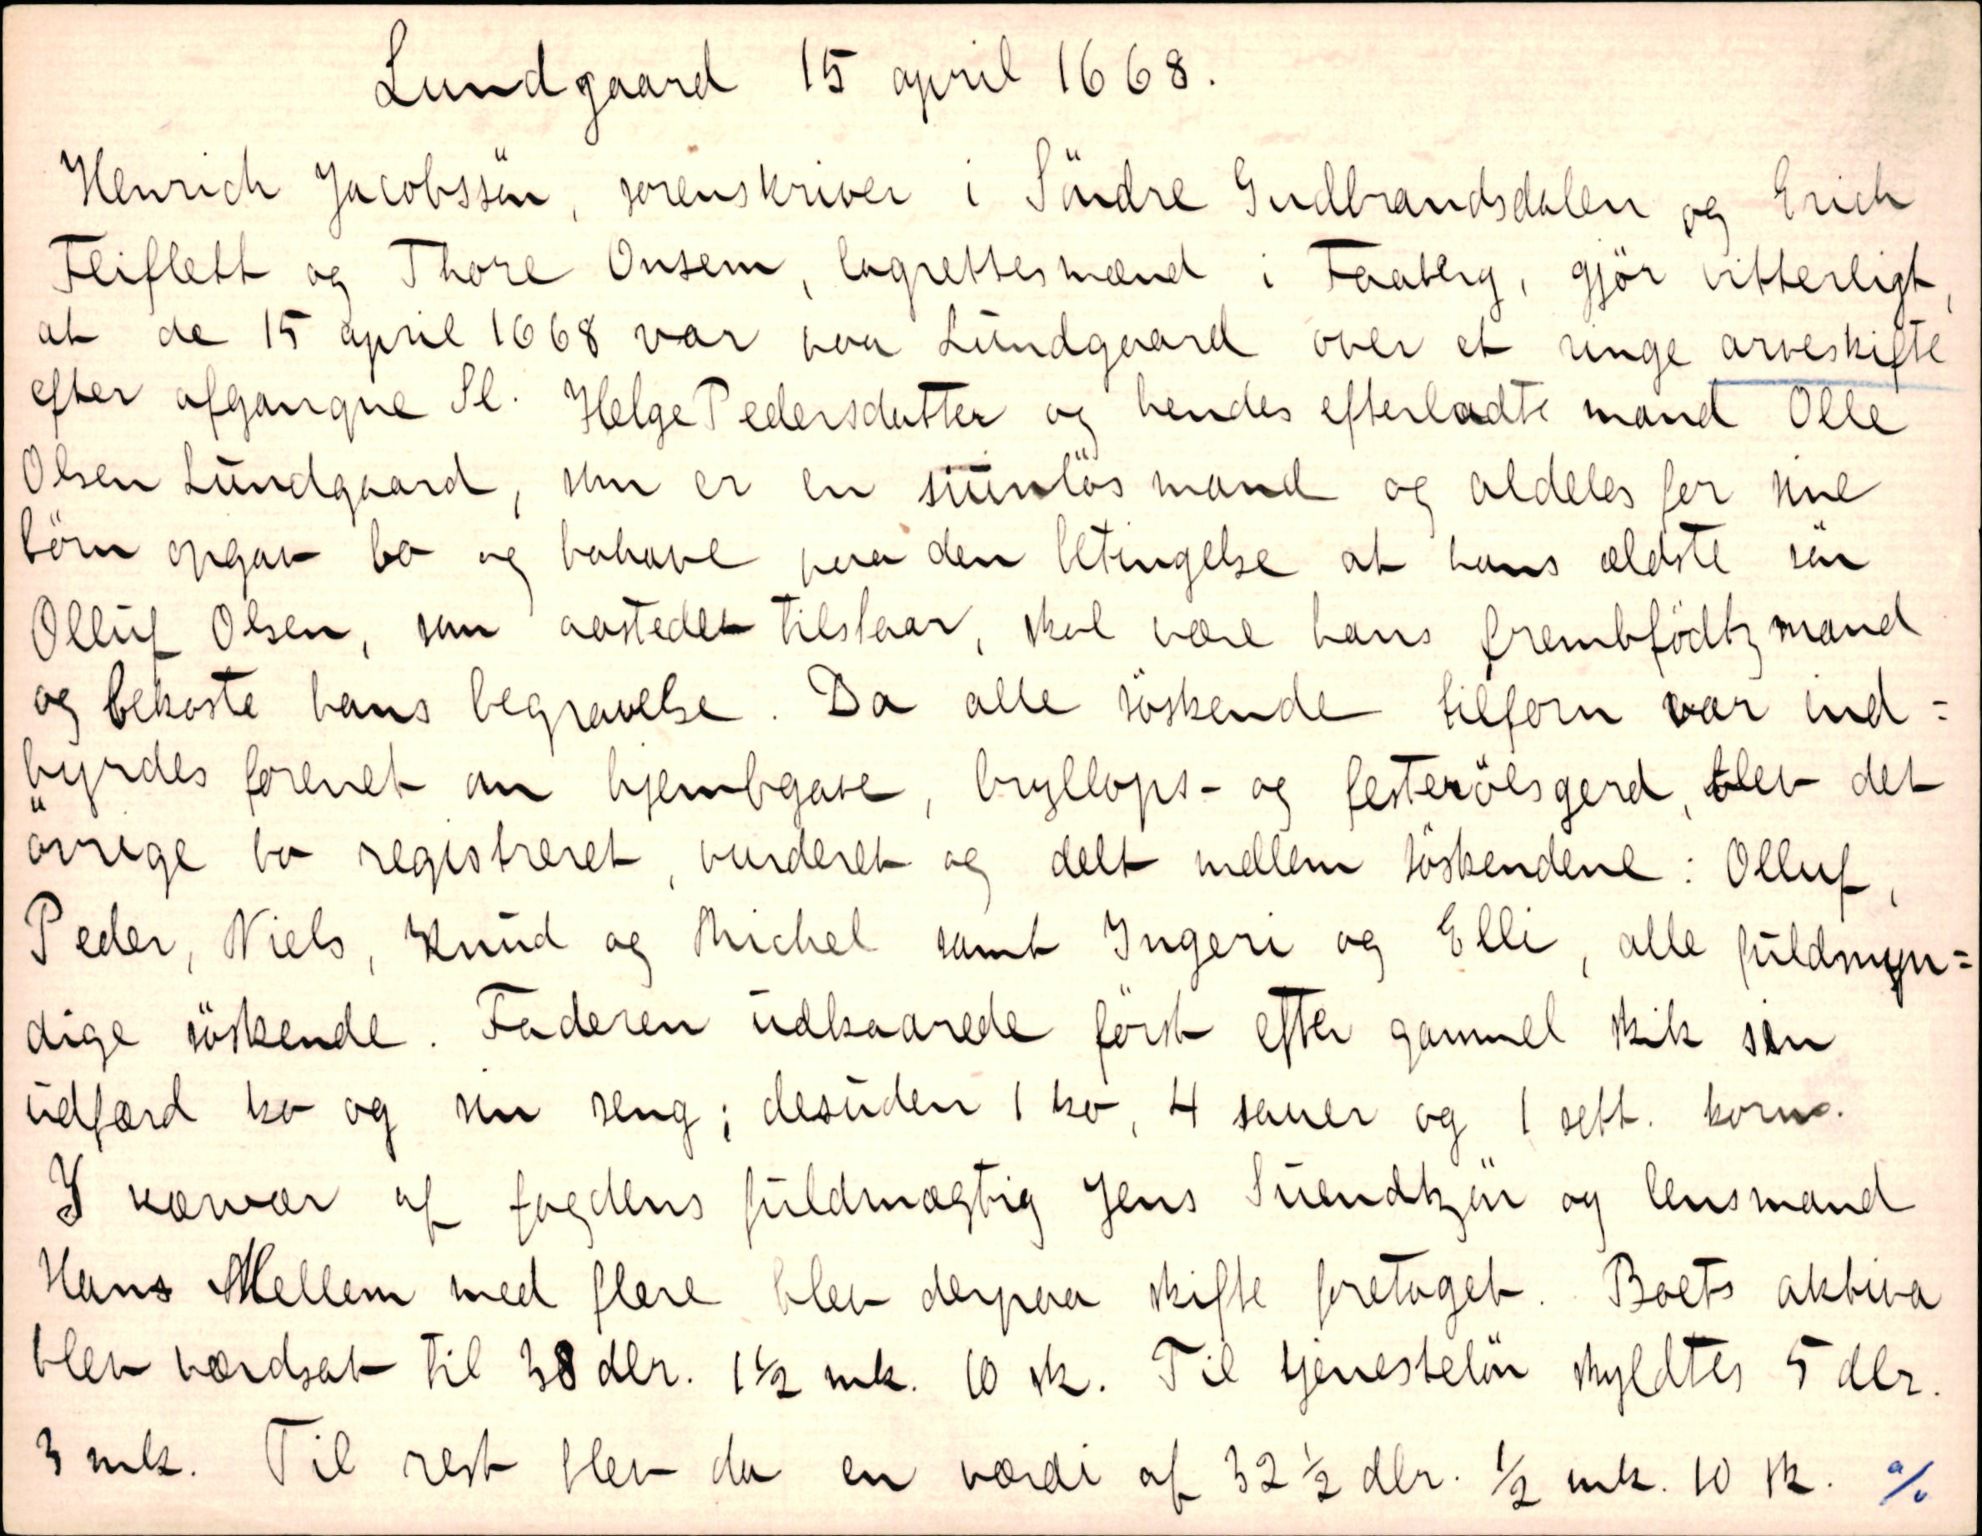 Lundgaard 15 april 1668.
Henrich Jacobssön, sorenskriver i Söndre Gudbrandsdalen og Erich
Fliflett og Thore Onsem, lagrettesmænd i Faaberg, gjör vitterligt,
at de 15 april 1668 var paa Lundgaard over et ringe arveskifte
efter afgangne Sl. Helge Pedersdatter og hendes efterladte mand Olle
Olsen Lundgaard, som er en siunlös mand og aldeles for sine
börn opgav bo og bohave paa den betingelse at hans ældste sön
Olluf Olsen, som aastedet tilstaar, skal være hans frembfödtz mand
og bekoste hans begravelse. Da alle söskende tilforn var ind=
byrdes forenet om hjembgave, bryllops- og festerölsgerd, blev det
övrige bo registreret, vurderet og delt mellem söskendene: Olluf,
Peder, Niels, Knud og Michel samt Ingeri og Elli, alle fuldmyn=
dige söskende. Faderen udkaarede först efter gammel skik sin
udfærd ko og sin seng; desuden 1 ko, 4 sauer og 1 sett. korn.
I nærvær af fogdens fuldmægtig Jens Suendtzön og lensmand
Hans Mellem med flere blev derpaa skifte foretaget. Boets aktiva
blev værdsat til 38 dlr. 1½ mk. 10 sk. Til tjenestelön skyldtes 5 dlr.
3 mk. Til rest blev da en værdi af 32 ½ dlr. ½ mk. 10 sk. %